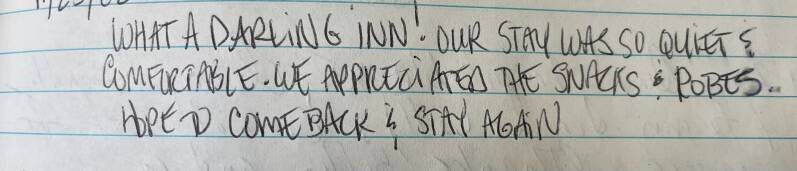 WHAT A DARLING INN! OUR STAY WAS SO QUIET &
COMFORTABLE. WE APPRECIATED THE SNACKS & ROBES..
HOPE TO COME BACK & STAY AGAIN